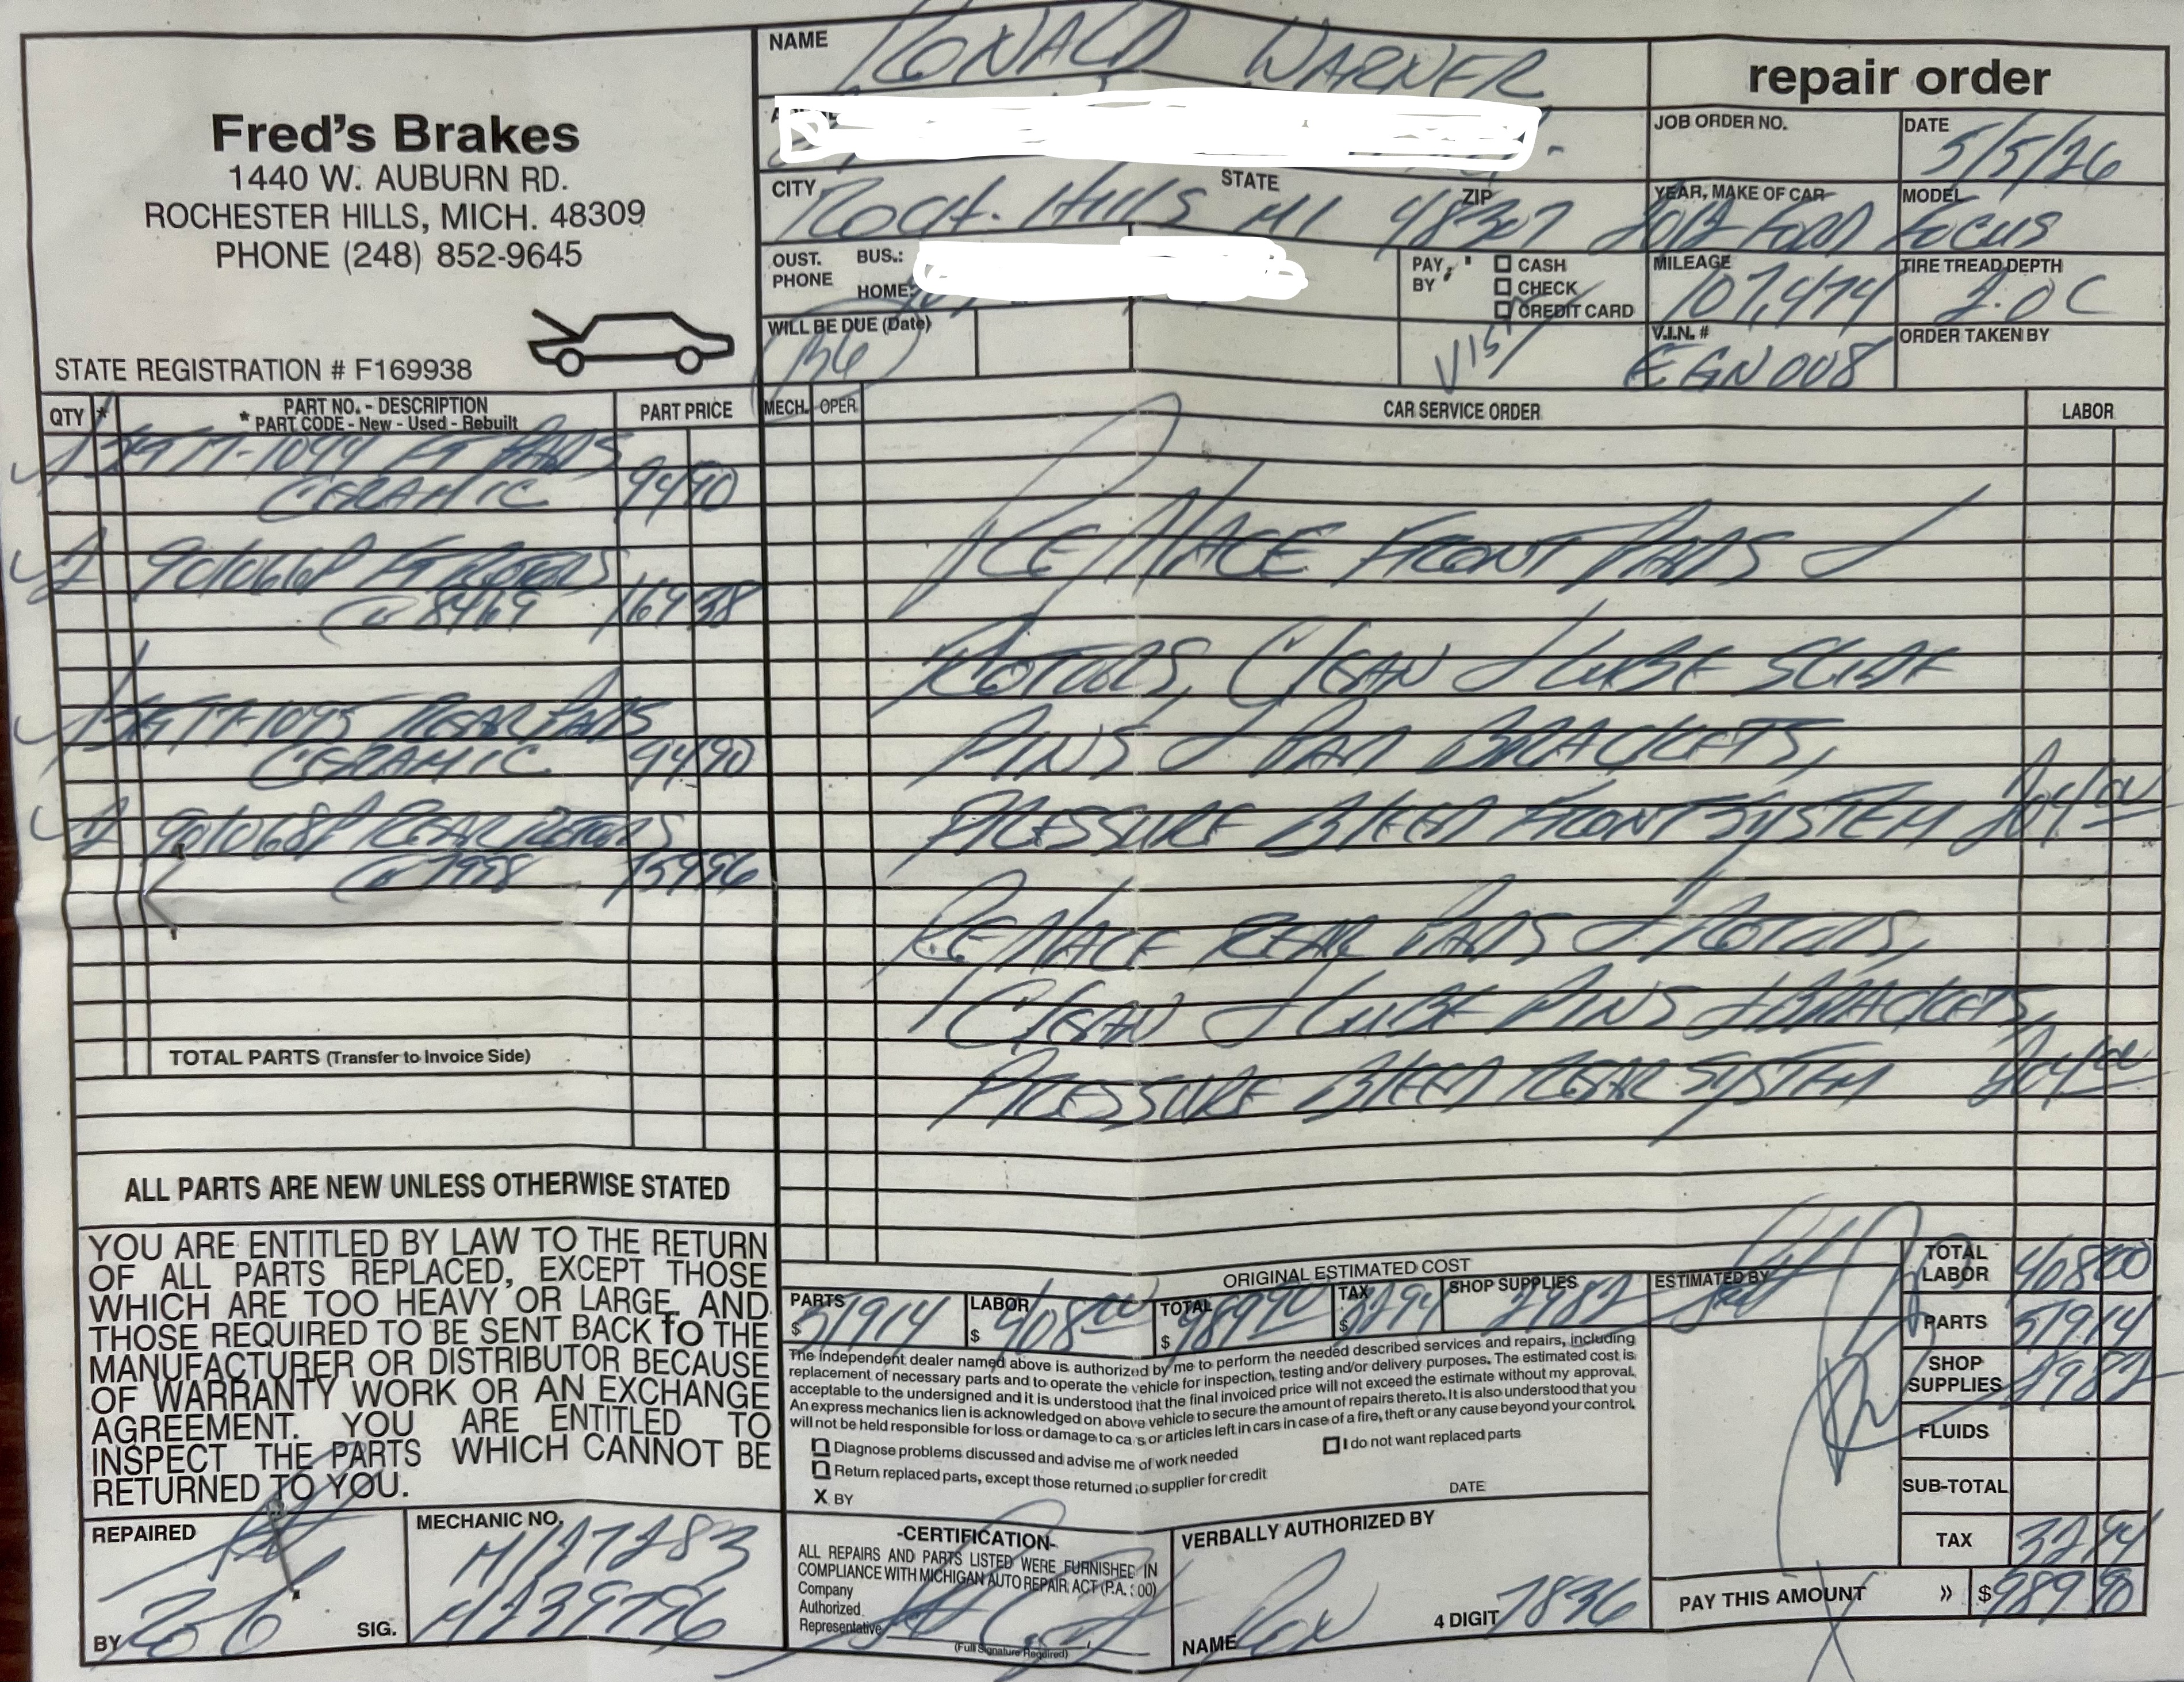 Fred's Brakes
1440 W. AUBURN RD.
ROCHESTER HILLS, MICH. 48309
PHONE (248) 852-9645
STATE REGISTRATION # F169938
NAME RONALD WARNER
repair order
JOB ORDER NO.
DATE 5/5/26
CITY ROCH. HILLS STATE MI ZIP 48307
YEAR, MAKE OF CAR 2012 FORD
MODEL FOCUS
OUST. PHONE BUS.:
HOME:
PAY BY
CASH
CHECK
CREDIT CARD
VISA
MILEAGE 107,474
TIRE TREAD DEPTH 2.0 C
WILL BE DUE (Date)
V.I.N. # EGN008
ORDER TAKEN BY
QTY * PART NO. - DESCRIPTION
* PART CODE - New - Used - Rebuilt
PART PRICE
1 FT PADS
CERAMIC 94 90
2 901066P FT ROTORS
@ 84 69 169 38
1 REAR PADS
CERAMIC 94 90
2 901068P REAR ROTORS
@ 79 98 159 96
TOTAL PARTS (Transfer to Invoice Side)
MECH. OPER CAR SERVICE ORDER LABOR
REPLACE FRONT PADS &
ROTORS, CLEAN & LUBE SLIDE
PINS & PAD BRACKETS,
PRESSURE BLEED FRONT SYSTEM 204 00
REPLACE REAR PADS & ROTORS,
CLEAN & LUBE PINS & BRACKETS,
PRESSURE BLEED REAR SYSTEM 204 00
ALL PARTS ARE NEW UNLESS OTHERWISE STATED
YOU ARE ENTITLED BY LAW TO THE RETURN
OF ALL PARTS REPLACED, EXCEPT THOSE
WHICH ARE TOO HEAVY OR LARGE, AND
THOSE REQUIRED TO BE SENT BACK TO THE
MANUFACTURER OR DISTRIBUTOR BECAUSE
OF WARRANTY WORK OR AN EXCHANGE
AGREEMENT. YOU ARE ENTITLED TO
INSPECT THE PARTS WHICH CANNOT BE
RETURNED TO YOU.
ORIGINAL ESTIMATED COST
PARTS $ 519 14
LABOR $ 408 00
TOTAL $ 989 90
TAX $ 32 94
SHOP SUPPLIES 29 82
ESTIMATED BY
The independent dealer named above is authorized by me to perform the needed described services and repairs, including
replacement of necessary parts and to operate the vehicle for inspection, testing and/or delivery purposes. The estimated cost is
acceptable to the undersigned and it is understood that the final invoiced price will not exceed the estimate without my approval.
An express mechanics lien is acknowledged on above vehicle to secure the amount of repairs thereto. It is also understood that you
will not be held responsible for loss or damage to cars or articles left in cars in case of a fire, theft or any cause beyond your control.
Diagnose problems discussed and advise me of work needed
I do not want replaced parts
Return replaced parts, except those returned to supplier for credit
X BY
DATE
TOTAL LABOR 408 00
PARTS 519 14
SHOP SUPPLIES 29 82
FLUIDS
SUB-TOTAL
TAX 32 94
PAY THIS AMOUNT » $ 989 90
REPAIRED
BY
SIG.
MECHANIC NO.
M127283
M239796
-CERTIFICATION-
ALL REPAIRS AND PARTS LISTED WERE FURNISHED IN
COMPLIANCE WITH MICHIGAN AUTO REPAIR ACT (P.A. :00)
Company
Authorized
Representative
(Full Signature Required)
VERBALLY AUTHORIZED BY
NAME
4 DIGIT 7836